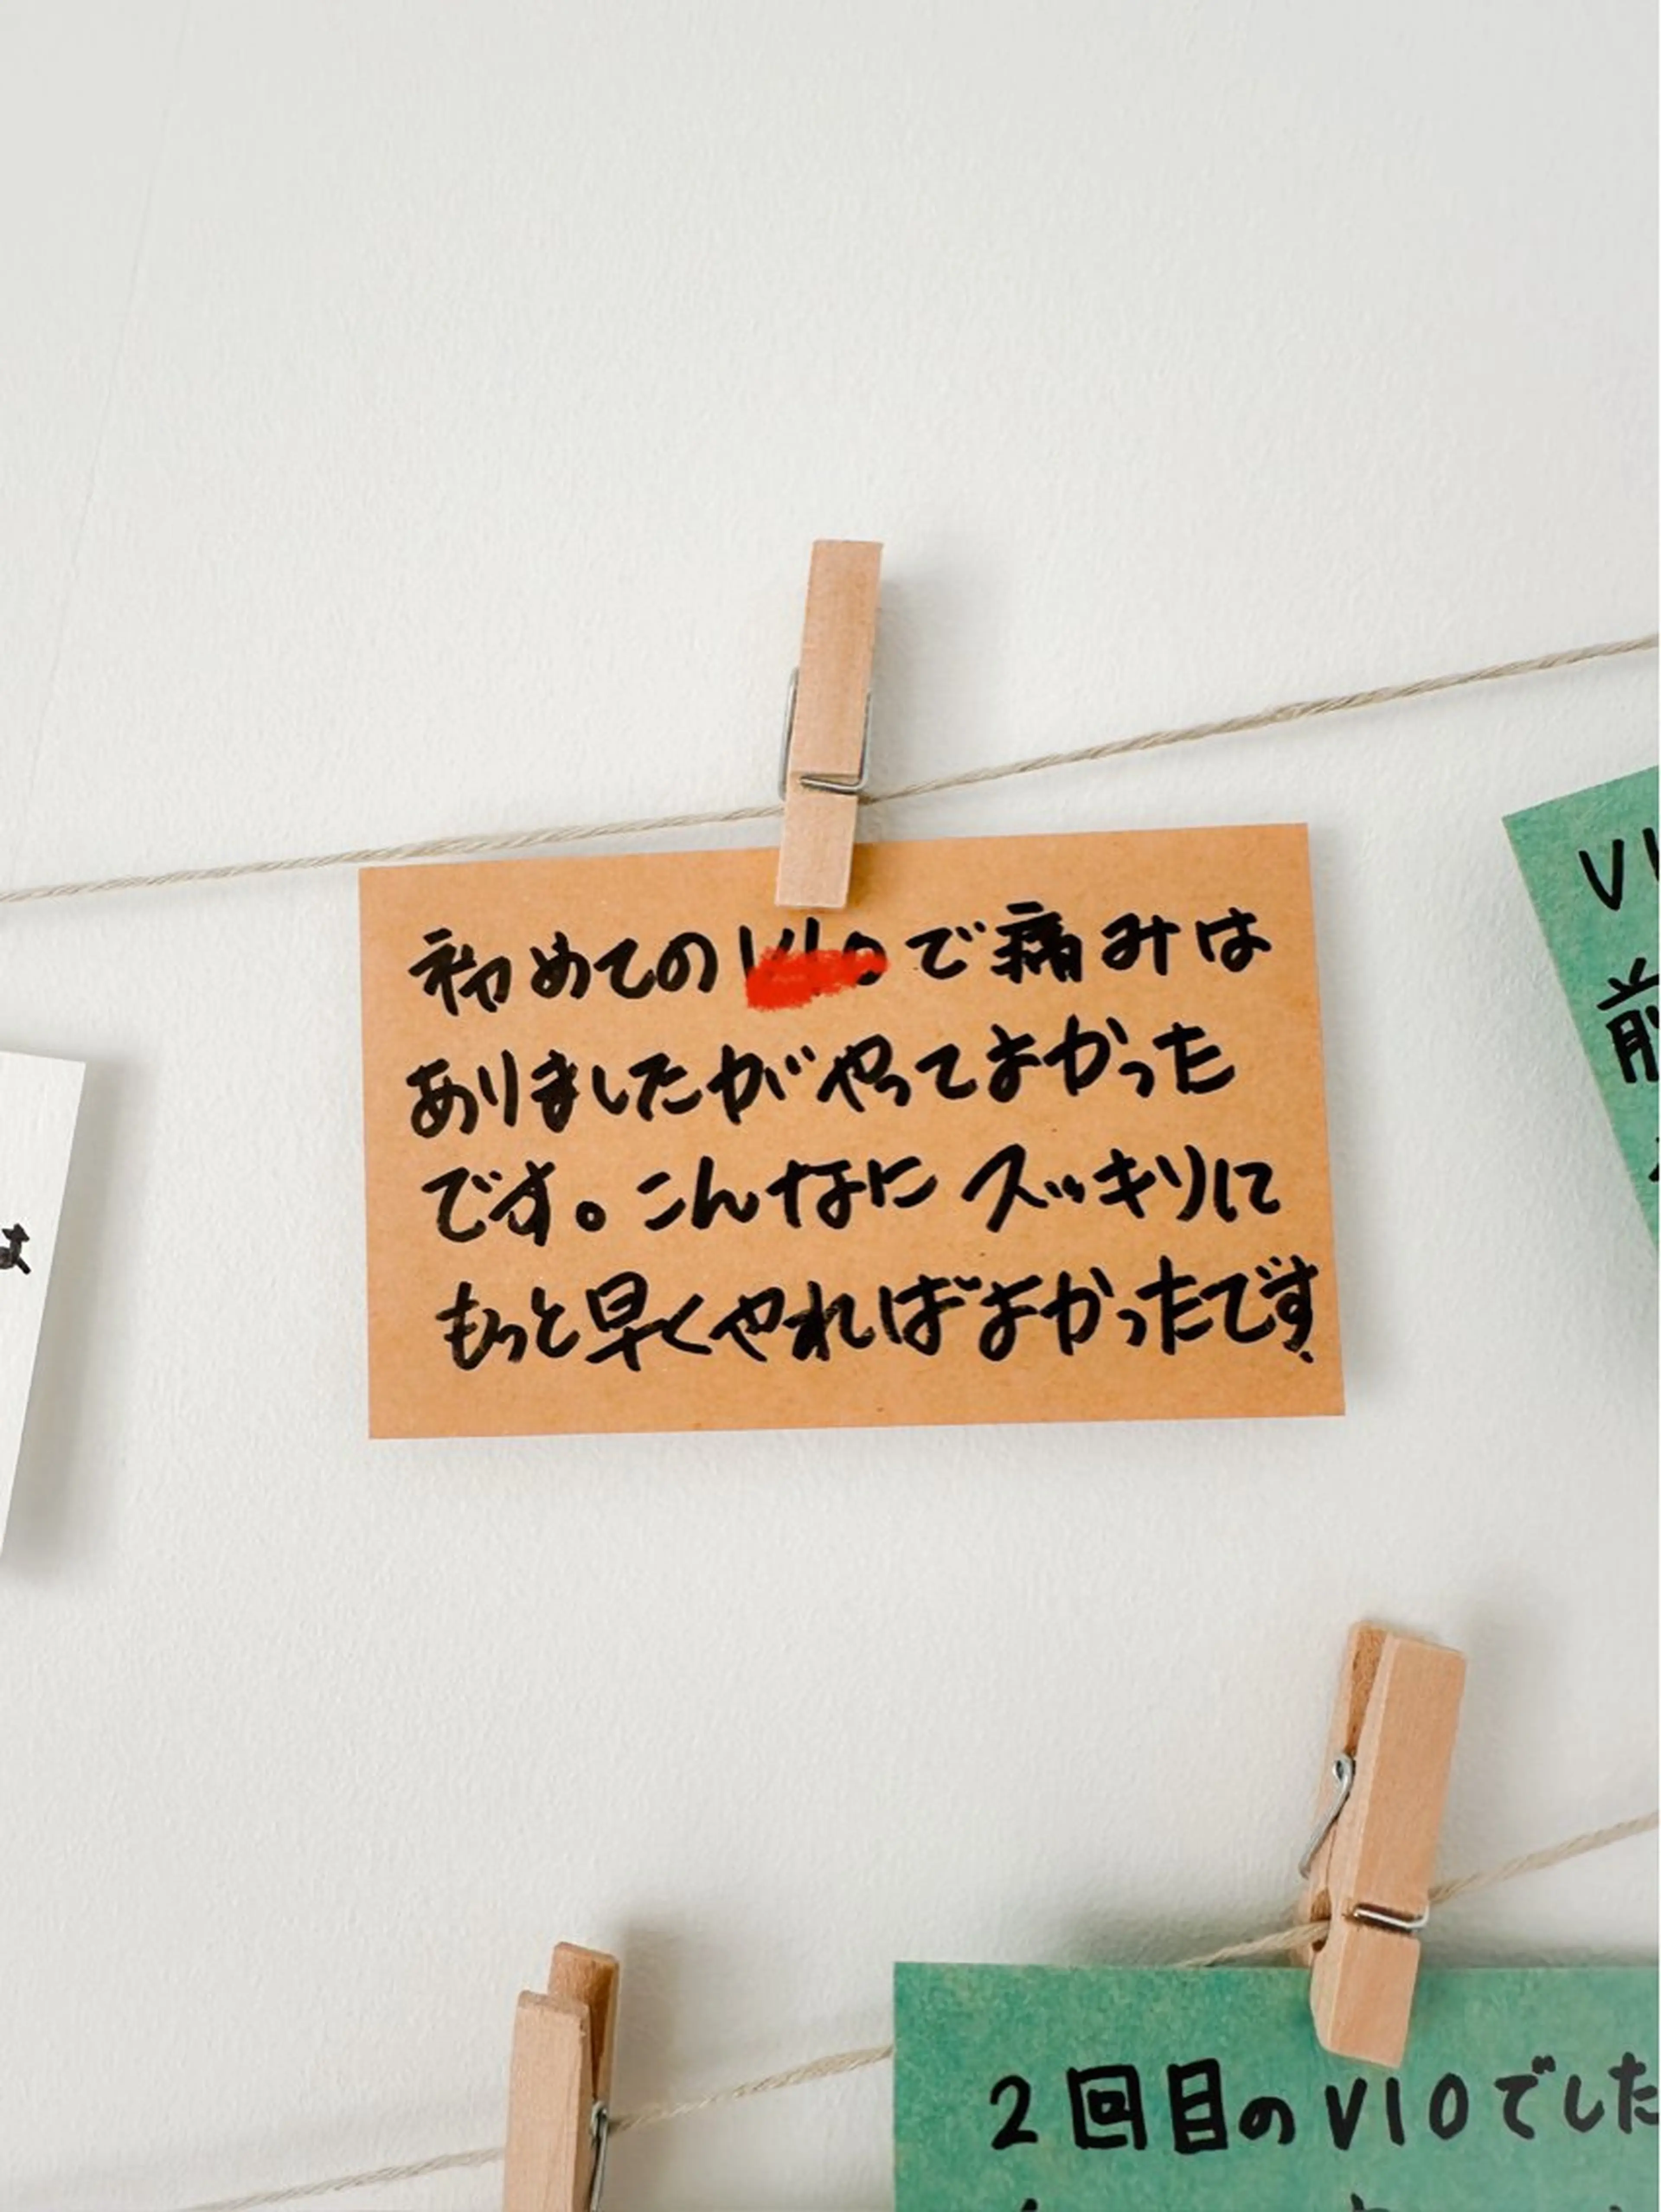 初めての で痛みは
ありましたがやってよかった
です。こんなにスッキリに
もっと早くやればよかったです
2回目のVIOでした